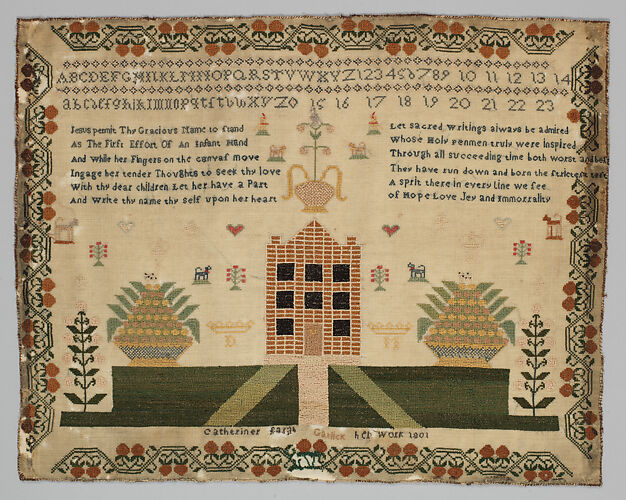 ABCDEFGHIKLMNOPQRSTVWXYZ123456789 10 11 12 13 14
15 16 17 18 19 20 21 22 23
Jesus permit Thy Gracious Name to stand
As The First Effort Of An Infant Hand
And While her Fingers on the canvas move
Ingage her tender Thoughts to seek thy love
With thy dear children Let her have a Part
And Write thy name thy self upon her heart
Let sacred Writings always be admired
Whose Holy penmen truly were inspired
Through all succeeding time both worst and best
They have run down and born the strictest test
A sprit there in every line we see
of Hope Love Joy and Immorrality
D
Catheriner Garlick her Work 1801